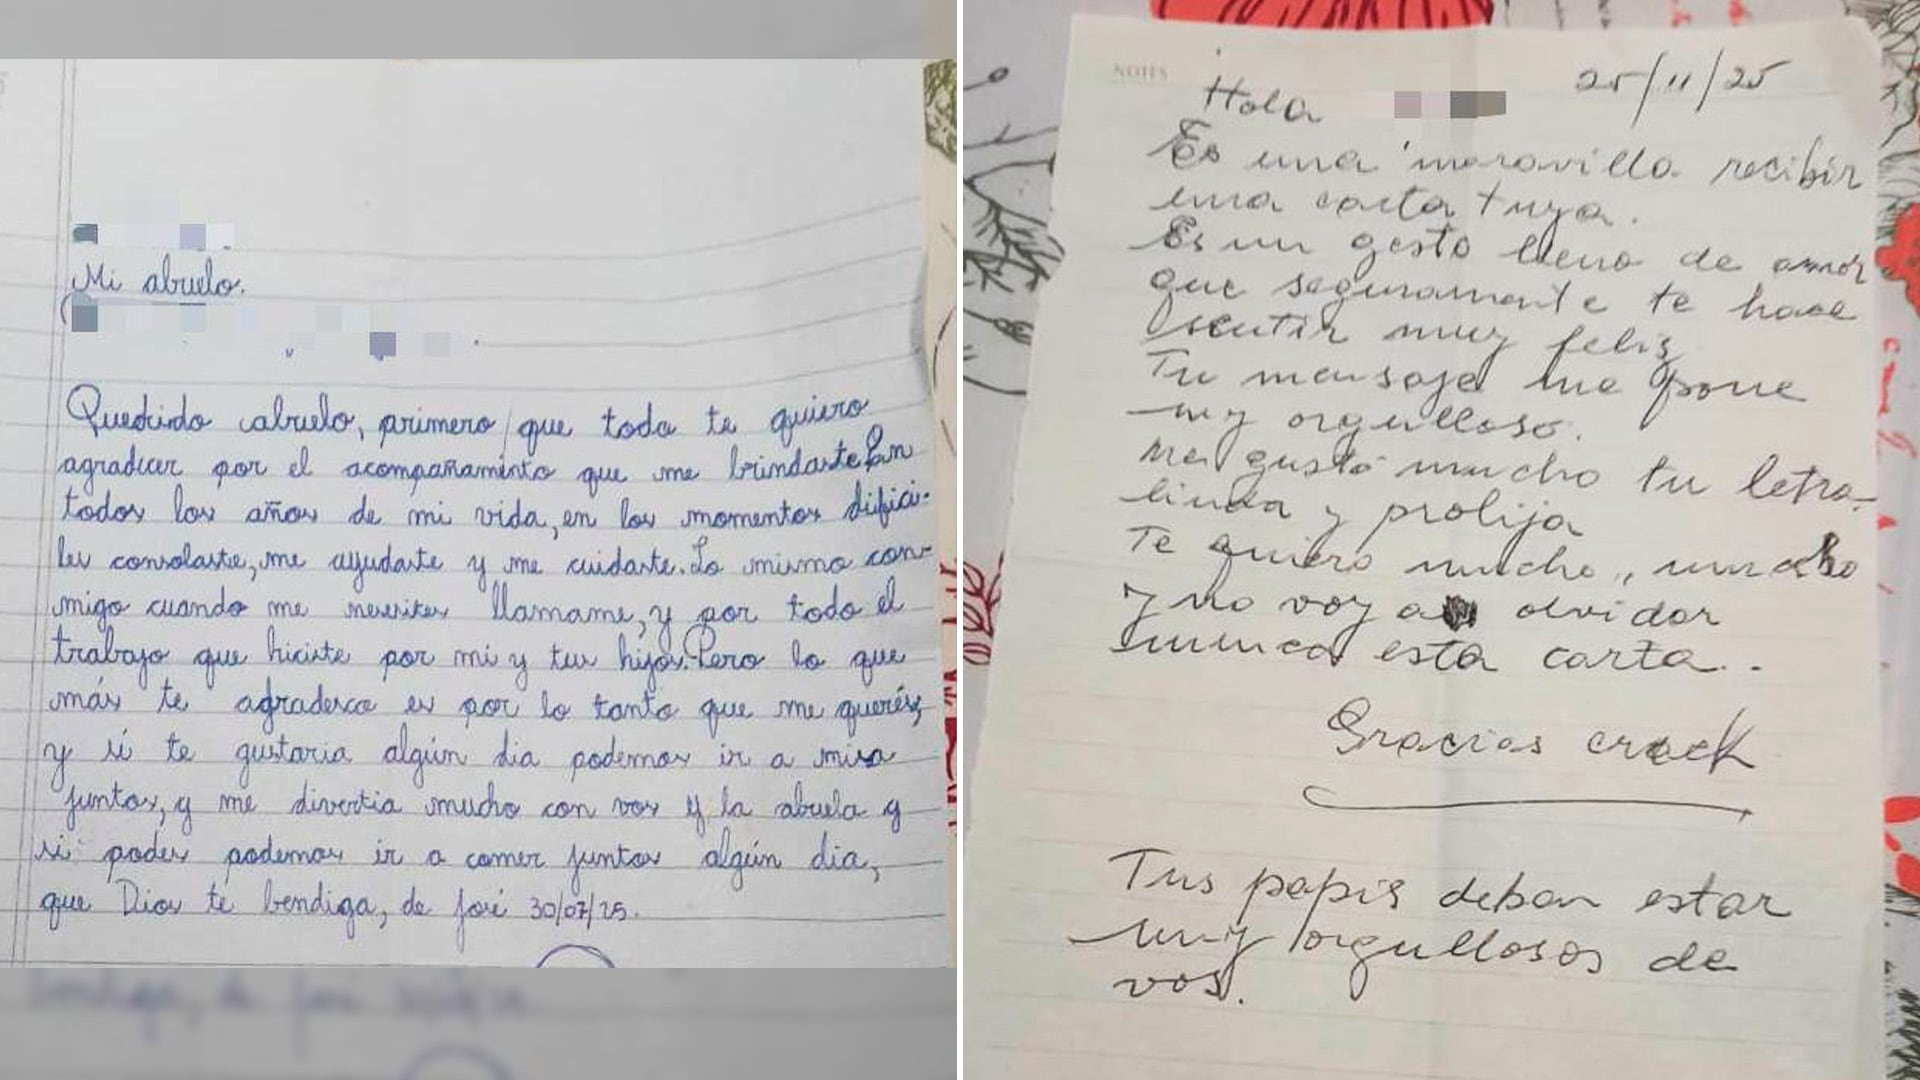 Mi abuelo.
Querido abuelo, primero que todo te quiero
agradecer por el acompañamiento que me brindaste en
todos los años de mi vida, en los momentos difici-
les consolaste, me ayudaste y me cuidaste. Lo mismo con-
migo cuando me necesites llamame, y por todo el
trabajo que hiciste por mi y tus hijos. Pero lo que
más te agradesco es por lo tanto que me querés,
y si te gustaria algún dia podemos ir a misa
juntos, y me divertia mucho con vos y la abuela y
si podes podemos ir a comer juntos algún dia,
que Dios te bendiga, de José 30/07/25.
NOTES
Hola 25/11/25
Es una maravilla recibir
una carta tuya.
Es un gesto lleno de amor
que seguramente te hace
sentir muy feliz
Tu mensaje me pone
muy orgulloso.
Me gustó mucho tu letra
linda y prolija
Te quiero mucho, mucho
y no voy a olvidar
nunca esta carta..
Gracias crack
Tus papis deben estar
muy orgullosos de
vos.